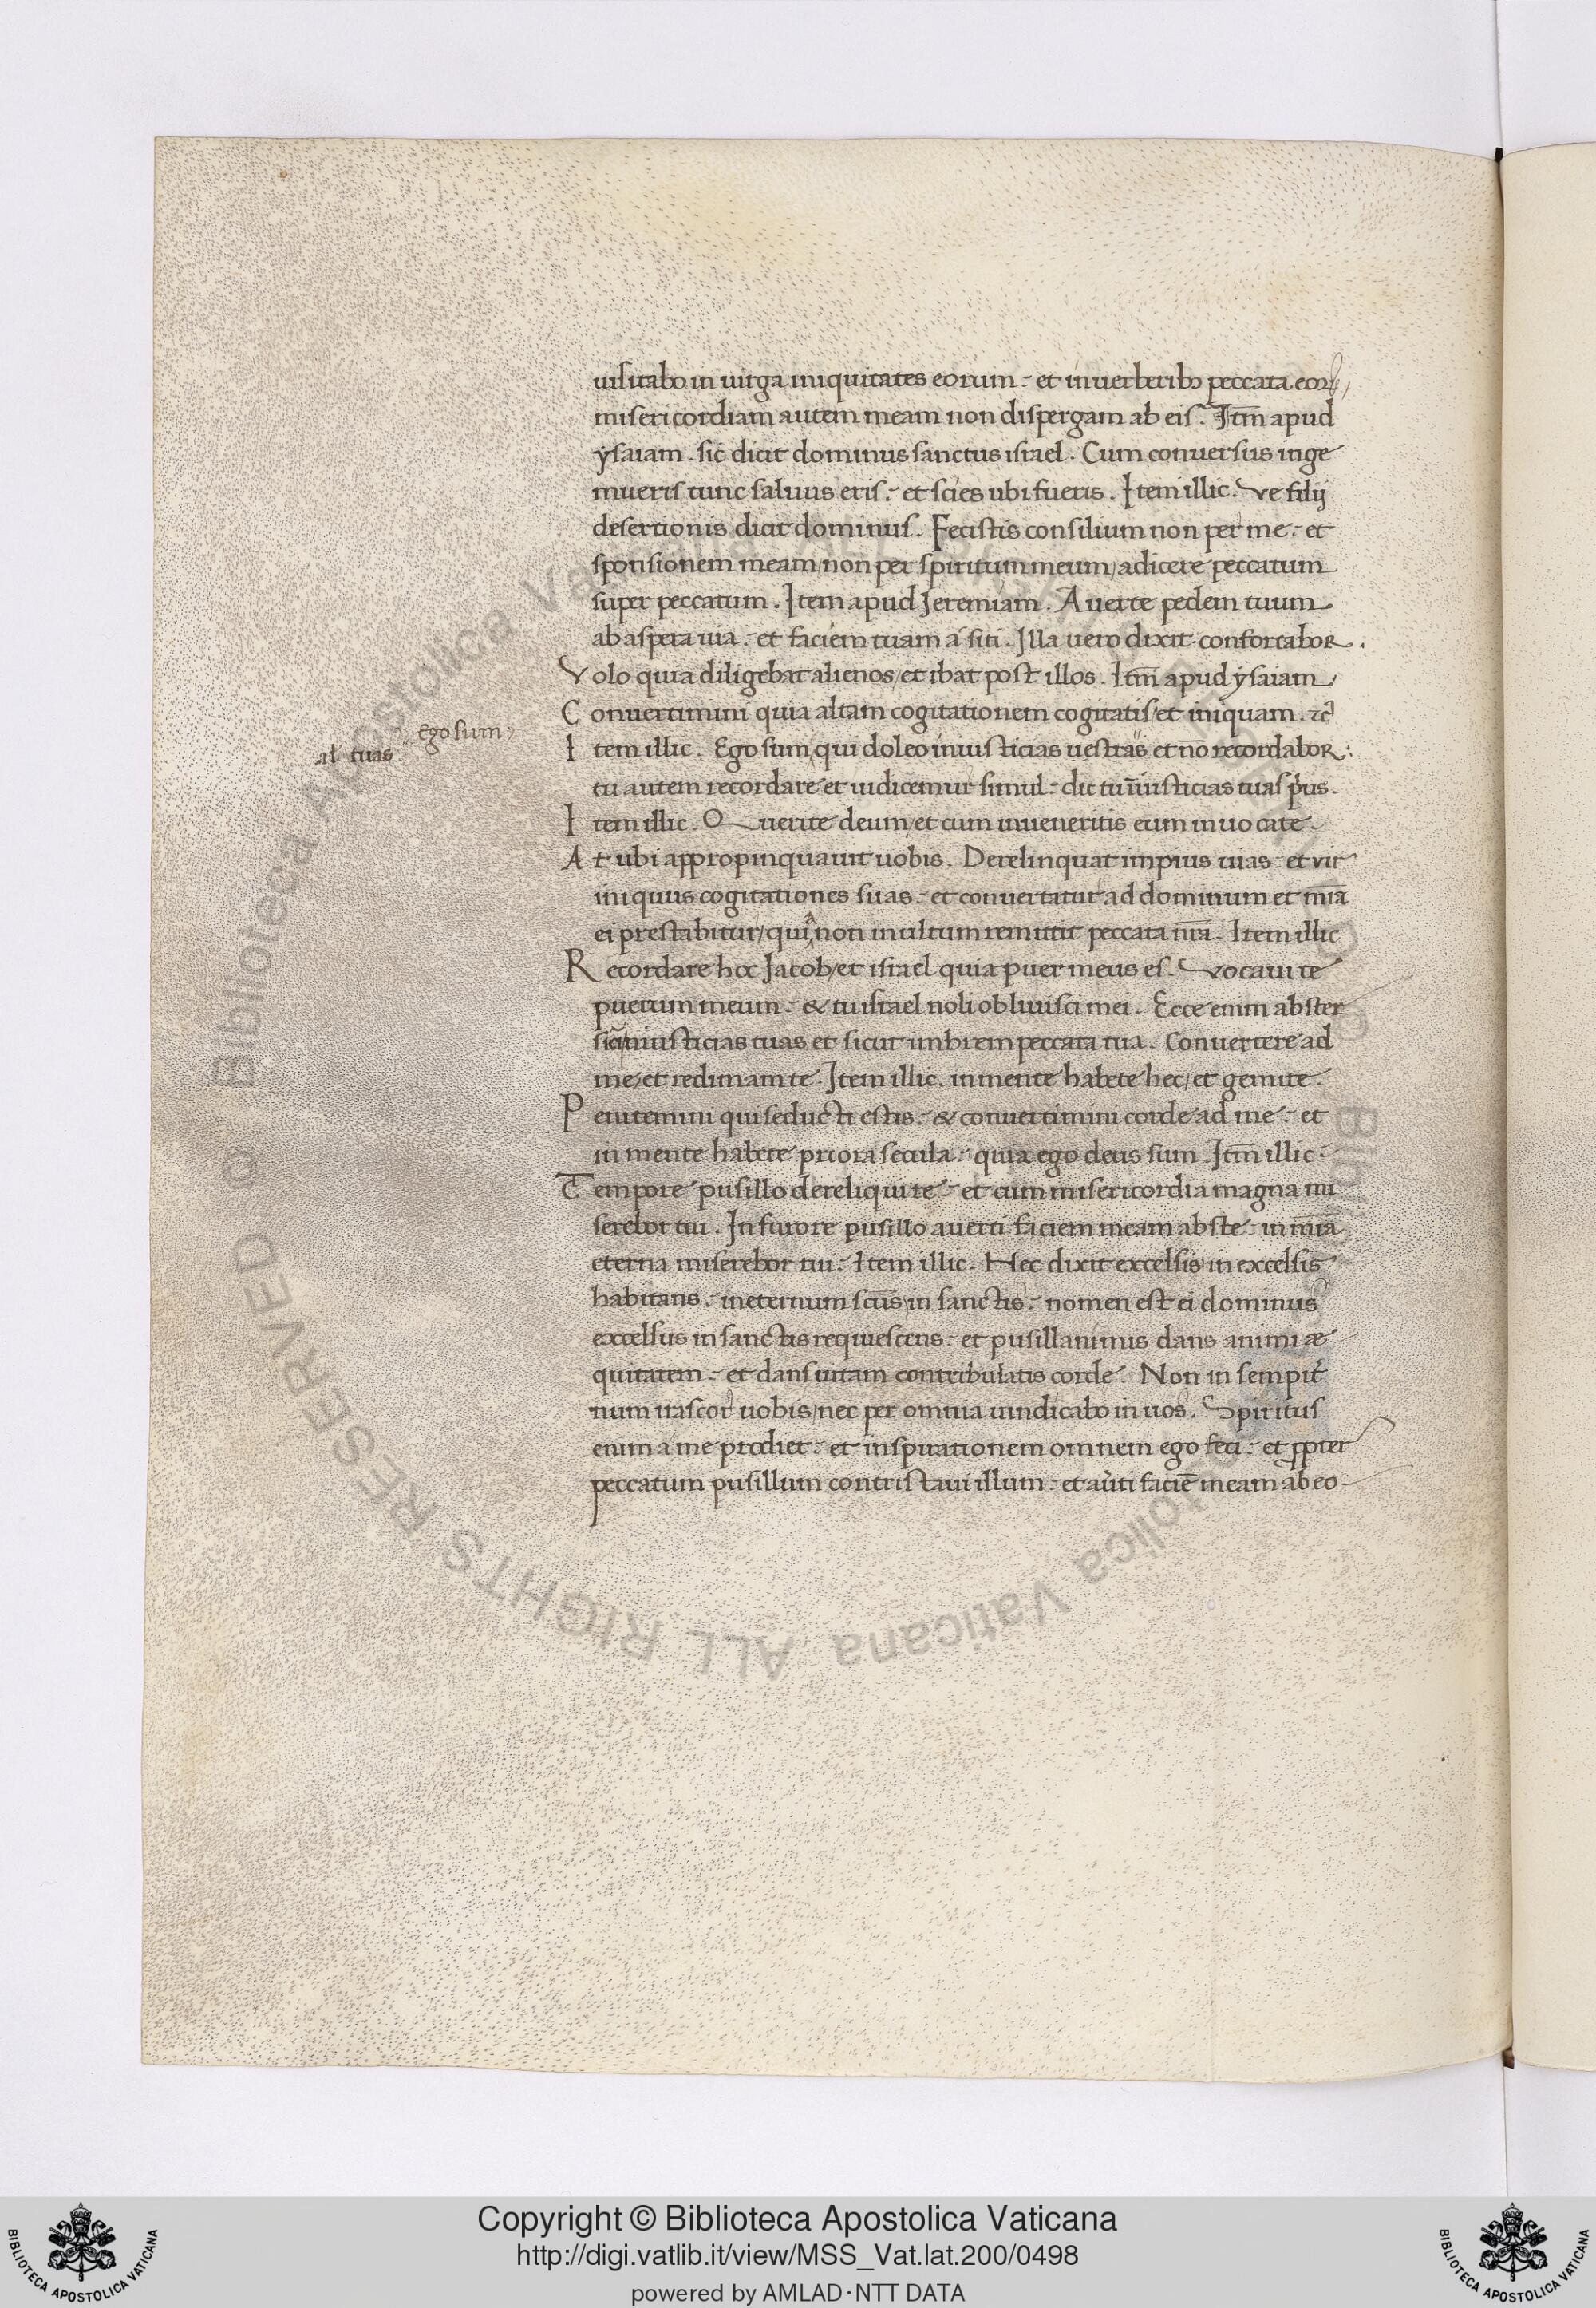 uisitabo in uirga iniquitates eorum : et in uerberibꝫ peccata eoꝝ /
misericordiam autem meam non dispergam ab eis . Itm̄ apud
ẏsaiam . sic dicit dominus sanctus israel . Cum conuersus inge
mueris tunc saluus eris : et scies ubi fueris . Item illic . Ve filij
desertionis dicit dominus . Fecistis consilium non per me : et
sponsionem meam / non per spiritum meum / adicere peccatum
super peccatum . Item apud Jeremiam . Auerte pedem tuum
ab aspera uia : et faciem tuam a siti . Illa uero dixit confortabor .
Volo quia diligebat alienos / et ibat post illos . Itm̄ apud ẏsaiam
Conuertimini quia altam cogitationem cogitatis / et iniquam . ⁊c̄
Ego sum
al tuas
Item illic . Ego sum qui doleo iniusticias uestras et nō recordabor :
tu autem recordare et iudicemur simul : dic tu īiusticias tuas prius .
Item illic . Querite deum / et cum inueneritis eum inuocate .
At ubi appropinquauit uobis . Derelinquat impius uias : et vir
iniquus cogitationes suas : et conuertatur ad dominum et m̄ia
ei prestabitur / quia non in ultum remittit peccata nr̄a . Item illic
Recordare hoc Jacob / et israel quia puer meus es . Vocaui te
puerum meum : & tu israel noli obliuisci mei . Ecce enim abster
si iniusticias tuas et sicut imbrem peccata tua . Conuertere ad
me / et redimam te . Item illic . in mente habete hec / et gemite .
Penitemini qui seducti estis : & conuertimini corde ad me : et
in mente habete priora secula : quia ego deus sum . Itm̄ illic .
Tempore pusillo dereliqui te : et cum misericordia magna mi
serebor tui . In furore pusillo auerti faciem meam abs te : in m̄ia
eterna miserebor tui : Item illic . Hec dixit excelsis in excelsis
habitans : in eternum scūs in sanctis : nomen est ei dominus
excelsus in sanctis requiescens : et pusillanimis dans animi æ
quitatem : et dans uitam contribulatis corde . Non in sempit̄
num irascor uobis / nec per omnia uindicabo in uos . Spiritus
enim a me prodiet : et inspirationem omnem ego feci : et ꝓpter
peccatum pusillum contristaui illum : et auֿti faciē meam ab eo
Copyright © Biblioteca Apostolica Vaticana
http://digi.vatlib.it/view/MSS_Vat.lat.200/0498
powered by AMLAD · NTT DATA
BIBLIOTECA APOSTOLICA VATICANA
BIBLIOTECA APOSTOLICA VATICANA